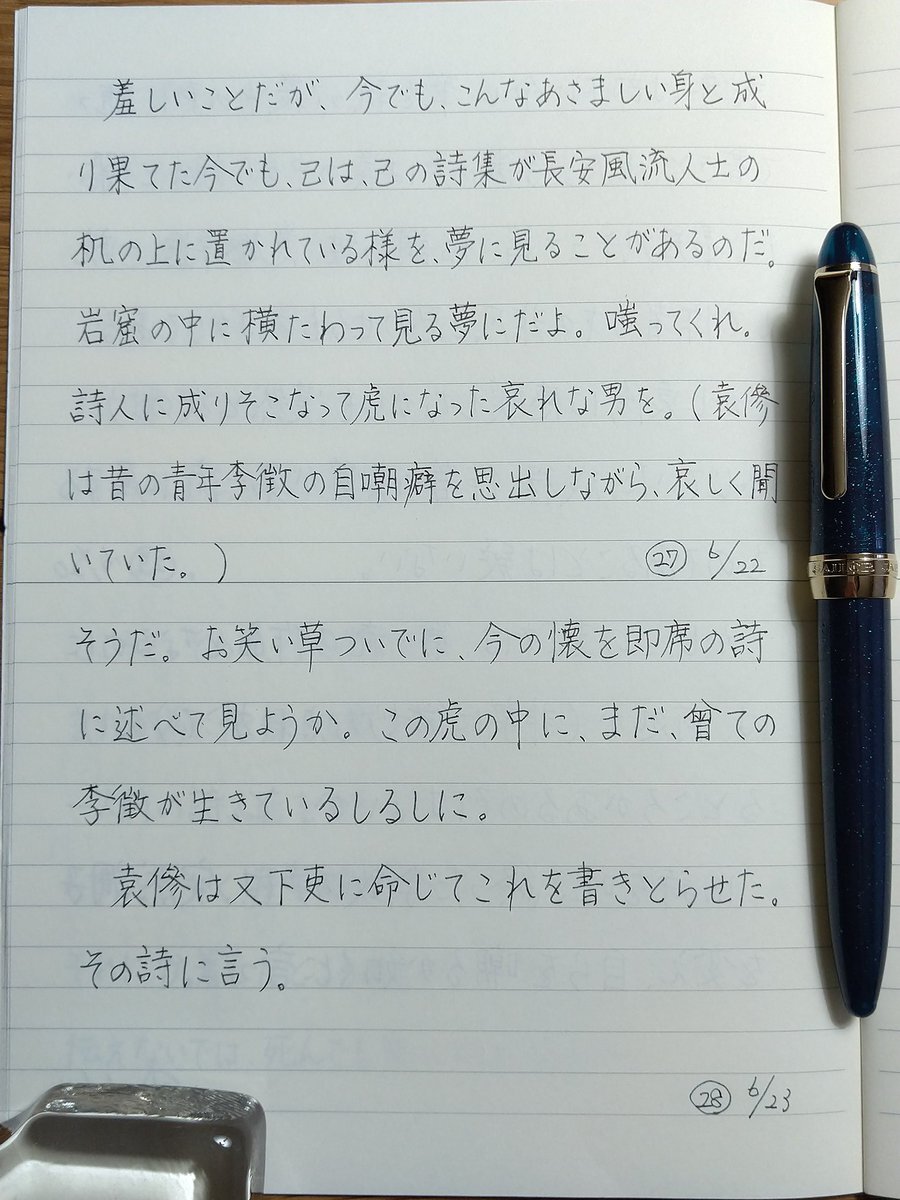 羞しいことだが、今でも、こんなあさましい身と成
り果てた今でも、己は、己の詩集が長安風流人士の
机の上に置かれている様を、夢に見ることがあるのだ。
岩窟の中に横たわって見る夢にだよ。嗤ってくれ。
詩人に成りそこなって虎になった哀れな男を。(袁傪
は昔の青年李徴の自嘲癖を思出しながら、哀しく聞
いていた。)
㉗ 6/22
そうだ。お笑い草ついでに、今の懐を即席の詩
に述べて見ようか。この虎の中に、まだ、曾ての
李徴が生きているしるしに。
袁傪は又下吏に命じてこれを書きとらせた。
その詩に言う。
㉘ 6/23